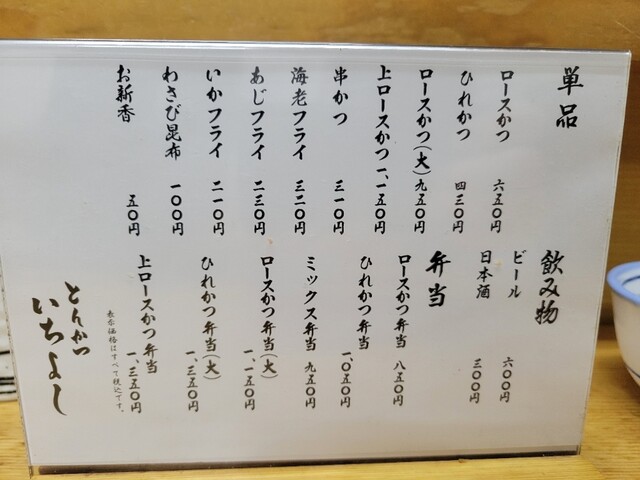 単品
ロースかつ 六五〇円
ひれかつ 四三〇円
ロースかつ(大) 九五〇円
上ロースかつ 一、一五〇円
串かつ 三一〇円
海老フライ 三二〇円
あじフライ 二三〇円
いかフライ 二一〇円
わさび昆布 一〇〇円
お新香 五〇円
飲み物
ビール 六〇〇円
日本酒 三〇〇円
弁当
ロースかつ弁当 八五〇円
ひれかつ弁当 一、〇五〇円
ミックス弁当 九五〇円
ロースかつ弁当(大) 一、一五〇円
ひれかつ弁当(大) 一、三五〇円
上ロースかつ弁当 一、三五〇円
表示価格はすべて税込です。
とんかつ
いちよし